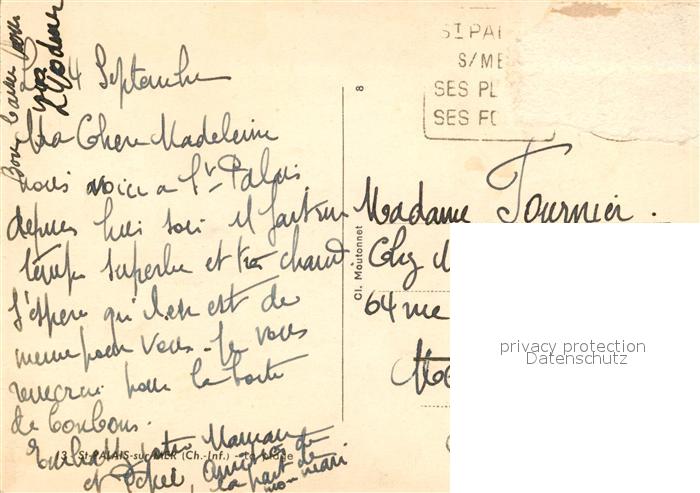 4 Septembre
Ma Chère Madeleine
nous voici a St Palais
depuis hier soir il fait un
temps superbe et très chaud.
J'espère qu'il en est de
meme pour vous. Je vous
remercie pour la boite
de bonbons.
votre Maman
et amitiés de
la part de
mon mari
13 St-PALAIS-sur-MER (Ch.-Inf.) - La plage
Cl. Moutonnet
8
ST PAL
S/ME
SES PL
SES FO
Madame Fournier.
Chez M
64 rue
privacy protection
Datenschutz